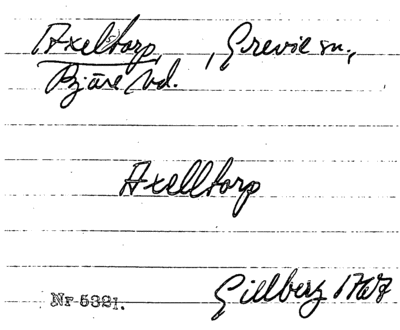 Axeltorp, Grevie sn.,
Bjäre hd.
Axelltorp
Gillberg 1767
Nr 5321.